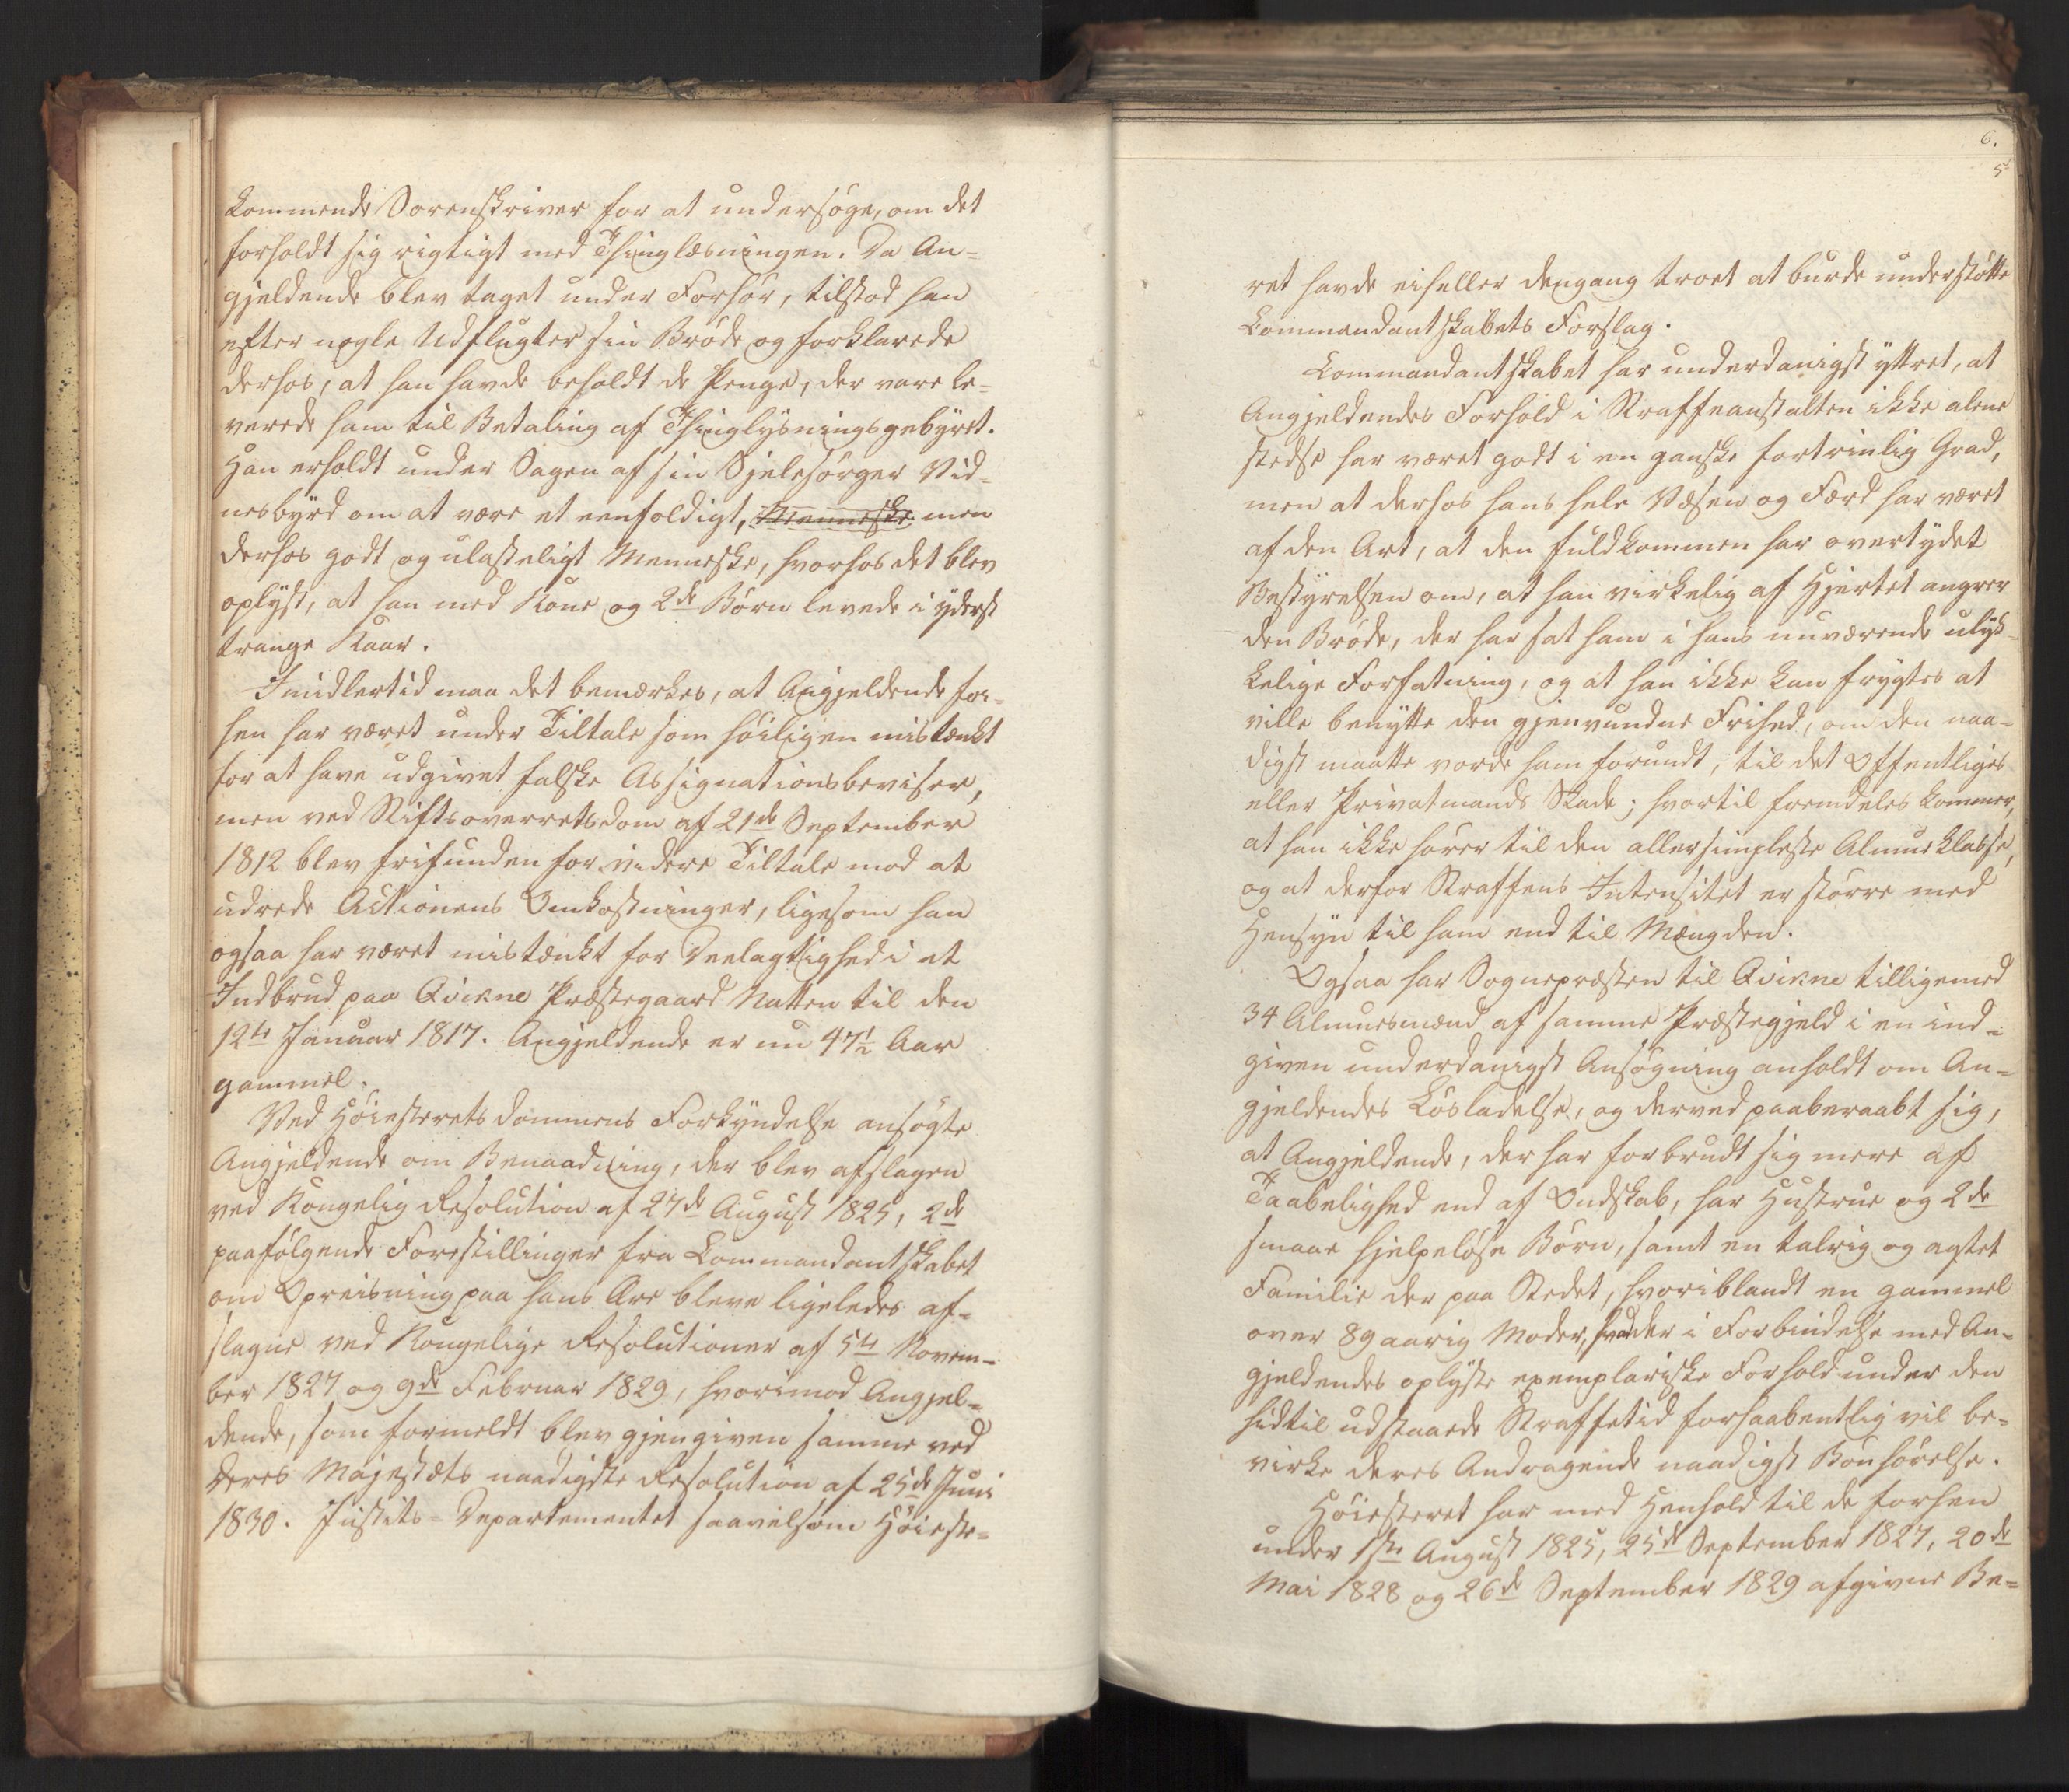 kommende Sorenskriver for at undersøge, om det
forholdt sig rigtigt med Thinglæsningen. Da An-
gjeldende blev taget under Forhør, tilstod han
efter nogle Udflugter sin Brøde og forklarede
derhos, at han havde beholdt de Penge, der vare le-
verede ham til Betaling af Thinglysningsgebyret.
Han erholdt under Sagen af sin Sjelesørger Vid-
nesbyrd om at være et eenfoldigt, Menneske men
derhos godt og ulasteligt Menneske, hvorhos det blev
oplyst, at han med Kone og 2de Børn levede i yderst
trange Kaar.
Imidlertid maa det bemærkes, at Angjeldende for-
hen har været under Tiltale som høiligen mistænkt
for at have udgivet falske Assignationsbeviser,
men ved Stiftsoverretsdom af 21de September
1812 blev frifunden for videre Tiltale mod at
udrede Actionens Omkostninger, ligesom han
ogsaa har været mistænkt for Deelagtighed i et
Indbrud paa Qvikne Præstegaard Natten til den
12te Januar 1817. Angjeldende er nu 47½ Aar
gammel.
Ved Høiesteretsdommens Forkyndelse ansøgte
Angjeldende om Benaadning, der blev afslagen
ved Kongelig Resolution af 27de August 1825, 2de
paafølgende Forestillinger fra Commandantskabet
om Opreisning paa hans Ære bleve ligeledes af-
slagne ved Kongelige Resolutioner af 5te Novem-
ber 1827 og 9de Februar 1829, hvorimod Angjel-
dende, som formeldt blev gjengiven samme ved
Deres Majestæts naadigste Resolution af 25de Juni
1830. Justits-Departementet saavelsom Høieste-
6.
5
ret havde eiheller dengang troet at burde understøtte
Commandantskabets Forslag.
Commandantskabet har underdanigst yttret, at
Angjeldendes Forhold i Straffeanstalten ikke alene
stedse har været godt i en ganske fortrinlig Grad,
men at derhos hans hele Væsen og Færd har været
af den Art, at den fuldkommen har overtydet
Bestyrelsen om, at han virkelig af Hjertet angrer
den Brøde, der har sat ham i hans nuværende ulyk-
kelige Forfatning, og at han ikke kan frygtes at
ville benytte den gjenvundne Frihed, om den naa-
digst maatte vorde ham forundt, til det Offentliges
eller Privatmands Skade; hvortil fremdeles kommer,
at han ikke hører til den allersimpleste Almueklasse,
og at derfor Straffens Intensitet er større med
Hensyn til ham end til Mængden.
Ogsaa har Sognepræsten til Qvikne tilligemed
34 Almuesmænd af samme Præstegjeld i en ind-
given underdanigst Ansøgning anholdt om An-
gjeldendes Løsladelse, og derved paaberaabt sig,
at Angjeldende, der har forbrudt sig mere af
Taabelighed end af Ondskab, har Hustrue og 2de
smaae hjelpeløse Børn, samt en talrig og agtet
Familie der paa Stedet, hvoriblandt en gammel
over 89 aarig Moder, hvad der i Forbindelse med An-
gjeldendes oplyste exemplariske Forhold under den
hidtil udstaaede Straffetid forhaabentlig vil be-
virke deres Andragende naadigst Bønhørelse.
Høiesteret har med Henhold til de forhen
under 1ste August 1825, 25de September 1827, 20de
Mai 1828 og 26de September 1829 afgivne Be-